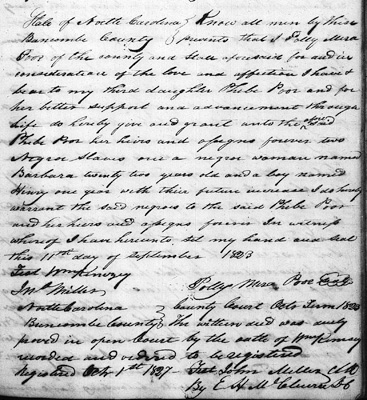 State of North Carolina } Know all men by these
Buncombe County } presents that I Polly Mira
Poor of the county and State aforesaid for and in
consideration of the love and affection I have &
bear to my third daughter Phebe Poor and for
her better support and advancement through
life do hereby give and grant unto the said
Phebe Poor her heirs and assigns forever two
Negroe Slaves one a negroe woman named
Barbara twenty two years old and a boy named
Henry one year with their future increase I do hereby
warrent the said negroes to the said Phebe Poor
and her heirs and assigns forever In witness
whereof I have hereunto set my hand and seal
this 11th day of September 1823
Test Wm Kimsey
Jno Miller
Polly Mira Poor Seal
North Carolina } County Court Octr Term 1823
Buncombe County } The within deed was duly
proved in open Court by the oath of Wm Kimsey
recorded and ordered to be registered
Registered Octr 1th 1827 Test John Miller Clk
By E H McClure D C